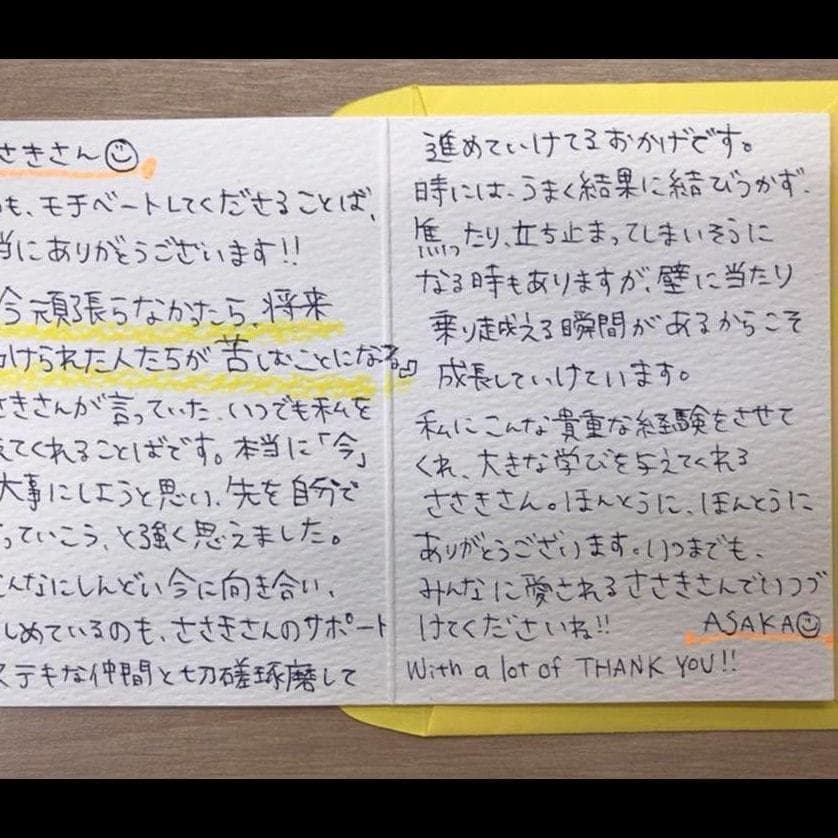 さきさん
も、モチベートしてくださることば、
当にありがとうございます!!
今頑張らなかったら、将来
けられた人たちが苦しむことになる」
さきさんが言っていた、いつでも私を
てくれることばです。本当に「今」
大事にしようと思い、先を自分で
っていこう、と強く思えました。
んなにしんどい今に向き合い、
しめているのも、ささきさんのサポート
ステキな仲間と切磋琢磨して
進めていけてるおかげです。
時には、うまく結果に結びつかず、
焦ったり、立ち止まってしまいそうに
なる時もありますが、壁に当たり
乗り越える瞬間があるからこそ
成長していけています。
私にこんな貴重な経験をさせて
くれ、大きな学びを与えてくれる
ささきさん。ほんとうに、ほんとうに
ありがとうございます。いつまでも、
みんなに愛されるささきさんでいつづ
けてくださいね!!
ASAKA
With a lot of THANK YOU!!